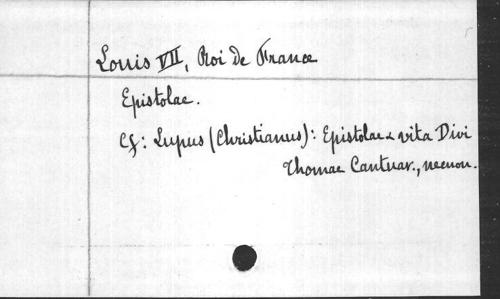 Louis VII, Roi de France
Epistolae.
Cf: Lupus (Christianus): Epistolae & vita Divi
Thomae Cantuar., necnon.